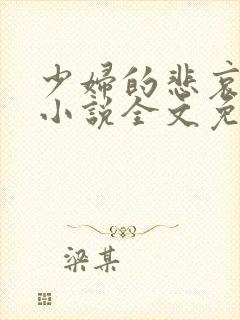 少婦的悲哀
小説全文免
梁某